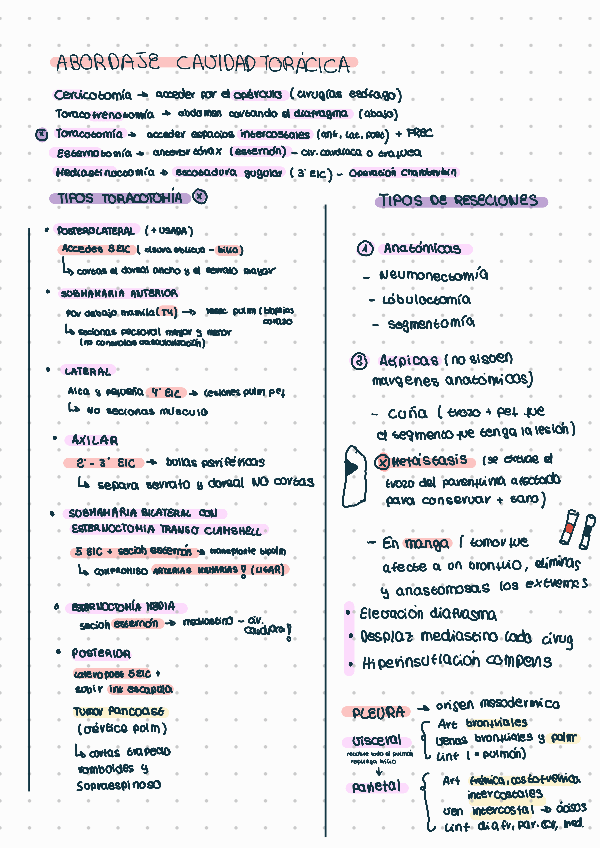 ABORDAJE CAVIDAD TORÁCICA
Cervicotomía → acceder por el opérculo (cirugías esófago)
Toracofrenotomía → abdomen cortando el diafragma (abajo)
(x) Toracotomía → acceder espacios intercostales (ant, lat, post) + FREC
Esternotomía → anterior tórax (esternón) - cir. cardiaca o tráquea
Mediastinoctomia → escotadura yugular (3º EIC) - Operación Chamberlain
TIPOS TORACOTOMÍA (x)
• POSTEROLATERAL (+ USADA)
Accedes 5 EIC (cisura oblicua - hilio)
↳ cortas el dorsal ancho y el serrato mayor
• SUBMAMARIA ANTERIOR
Por debajo mamila (T4) →
↳ secionas pectoral mayor y menor
• LATERAL
Alta y pequeña 4º EIC → lesiones pulm per
↳ No secionas músculo
• AXILAR
2º - 3º EIC → bullas periféricas
↳ separa serrato y dorsal NO cortas
• SUBMAMARIA BILATERAL CON
ESTERNOCTOMIA TRANSV CLAMSHELL
5 EIC + secion esternón → transplante bipulm
↳ COMPROMISO ARTERIAS MAMARIAS! (LIGAR)
• ESTERNOCTOMÍA MEDIA
secion esternón → mediastino - cir.
cardiaca!
• POSTERIOR
lateropost 5 EIC +
subir inf escapula
Tumor Pancoast
(vértice pulm)
↳ cortas trapecio
romboides y
Supraespinoso
TIPOS DE RESECIONES
① Anatómicas
- Neumonectomía
- Lobuloctomía
- segmentomía
② Atípicas (no siguen
margenes anatómicos)
- Cuña (trozo + peq que
el segmento que tenga la lesión)
(x) Metástasis (se extrae el
trozo del parenquima afectado
para conservar + sano)
- En manga (tumor que
afecte a un bronquio, eliminas
y anastomosas los extremos
• Elevación diafragma
• Desplaz mediastino lado cirug
• Hiperinsuflación compens
PLEURA → origen mesodermico
Visceral
recubre todo el pulmón
Art bronquiales
Venas bronquiales y pulm
Linf (= pulmón)
↓
Parietal
Art frénica, costofrenica,
intercostales
Ven intercostal → ácigos
Linf diafr, par. cos, med.